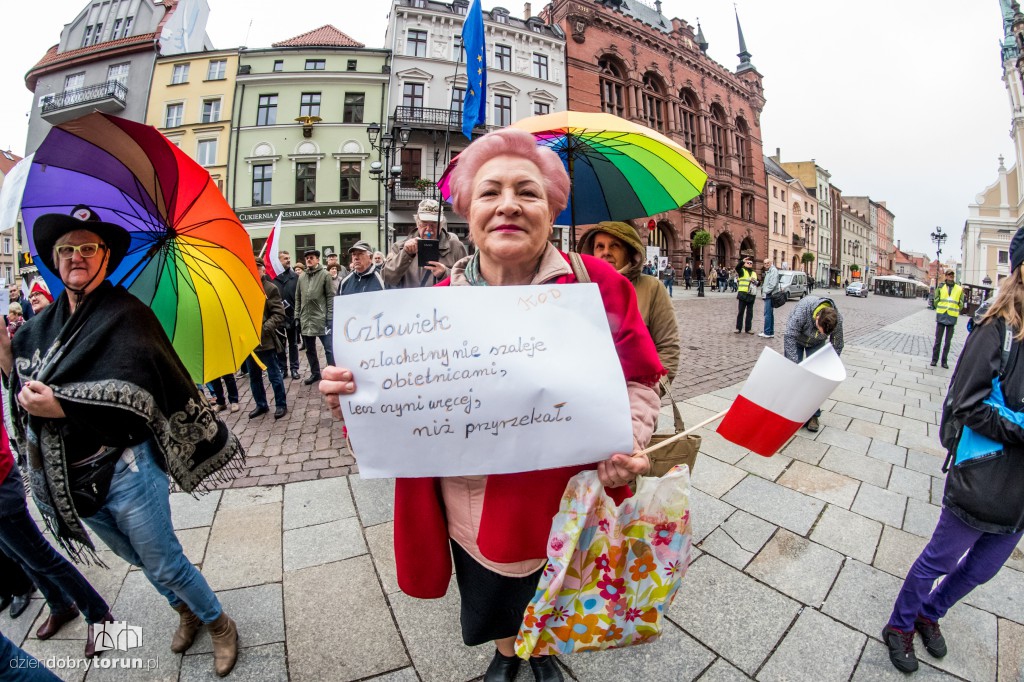 CUKIERNIA | RESTAURACJA | APARTAMENTY
KOD
Człowiek
szlachetny nie szaleje
obietnicami,
lecz czyni więcej,
niż przyrzekał.
dzieńdobrytoruń.pl